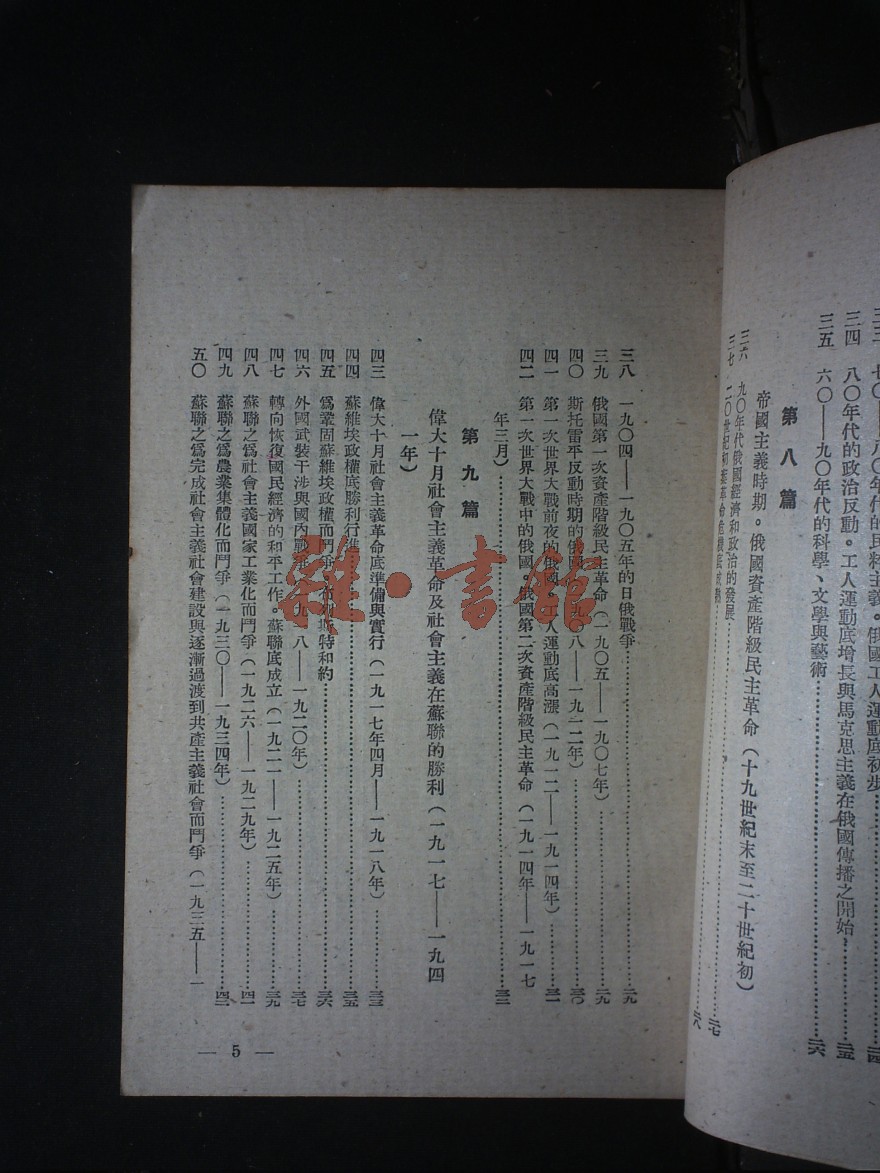 三五 六〇——九〇年代的科學、文學與藝術……二六
三四 八〇年代的政治反動。工人運動底增長與馬克思主義在俄國傳播之開始……二五
第八篇
帝國主義時期。俄國資產階級民主革命（十九世紀末至二十世紀初）
三六 九〇年代俄國經濟和政治的發展……二七
三七 二〇世紀初葉革命危機底成熟……二八
三八 一九〇四——一九〇五年的日俄戰爭……二九
三九 俄國第一次資產階級民主革命（一九〇五——一九〇七年）……二九
四〇 斯托雷平反動時期的俄國（一九〇八——一九一二年）……三〇
四一 第一次世界大戰前夜的俄國。工人運動底高漲（一九一二——一九一四年）……三一
四二 第一次世界大戰中的俄國。俄國第二次資產階級民主革命（一九一四年——一九一七
年三月）……三二
第九篇
偉大十月社會主義革命及社會主義在蘇聯的勝利（一九一七——一九四
一年）
四三 偉大十月社會主義革命底準備與實行（一九一七年四月——一九一八年）……三三
四四 蘇維埃政權底勝利行進……三五
四五 爲鞏固蘇維埃政權而鬥爭。布列斯特和約……三六
四六 外國武裝干涉與國內戰爭（一九一八——一九二〇年）……三七
四七 轉向恢復國民經濟的和平工作。蘇聯底成立（一九二一——一九二五年）……三九
四八 蘇聯之爲社會主義國家工業化而鬥爭（一九二六——一九二九年）……四一
四九 蘇聯之爲農業集體化而鬥爭（一九三〇——一九三四年）……四二
五〇 蘇聯之爲完成社會主義社會建設與逐漸過渡到共產主義社會而鬥爭（一九三五——一
— 5 —
雜·書館